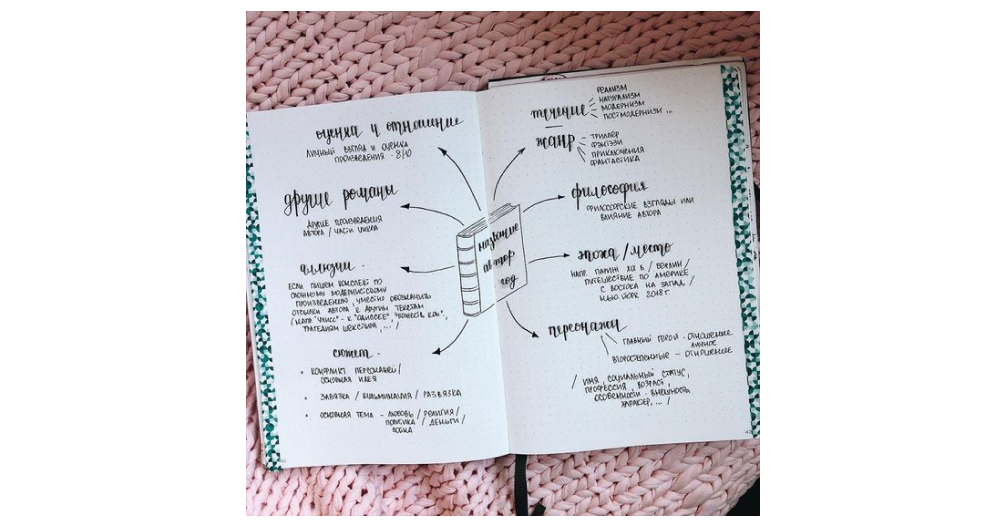 оценка и отношение
личный взгляд и оценка
произведения - 8/10
другие романы
другие произведения
автора / части цикла
аллюзии
если пишем конспект по
сложному модернистскому
произведению, уместно обозначить
отсылки автора к другим текстам
/ напр. "Улисс" - к "Одиссее",
трагедиям Шекспира, ... /
сюжет
конфликт персонажей /
основная идея
завязка / кульминация / развязка
основная тема - любовь / религия /
политика / деньги /
название
автор
год
течение
реализм
натурализм
модернизм
постмодернизм ...
жанр
триллер
фэнтэзи
приключения
фантастика
философия
философские взгляды или
влияние автора
эпоха / место
напр. Париж XIX в. / Берлин /
путешествие по Америке
с востока на запад /
Нью-Йорк 2018 г.
персонажи
главный герой - отношение
личное
второстепенные - отношение
/ имя, социальный статус,
профессия, возраст,
особенности - внешность,
характер, ... /